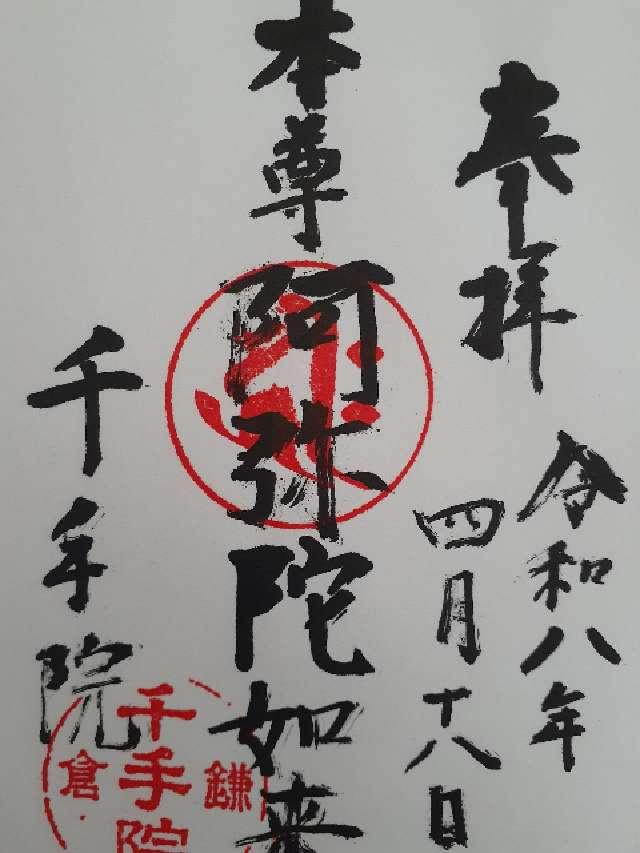 奉拝
令和八年
四月十八日
本尊
阿弥陀如来
千手院
鎌倉
千手院